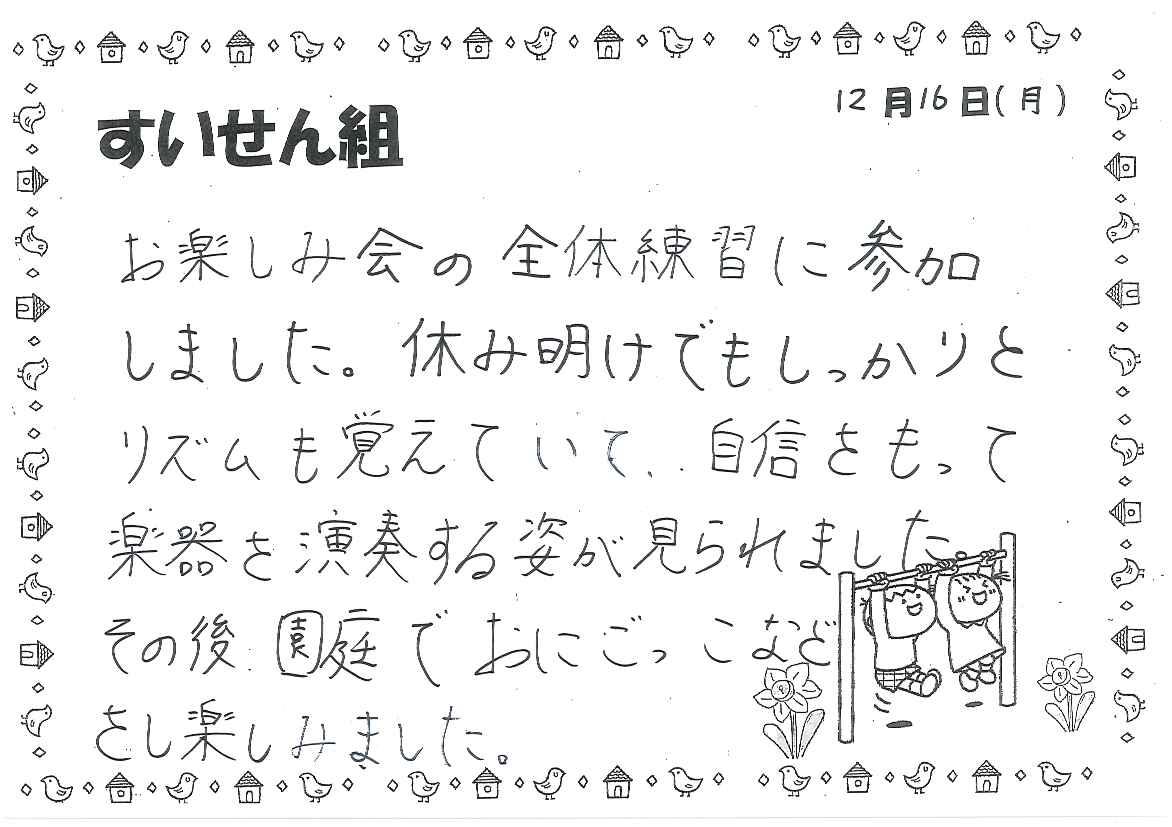 12月16日(月)
すいせん組
お楽しみ会の全体練習に参加
しました。休み明けでもしっかりと
リズムも覚えていて、自信をもって
楽器を演奏する姿が見られました。
その後園庭でおにごっこなど
をし楽しみました。